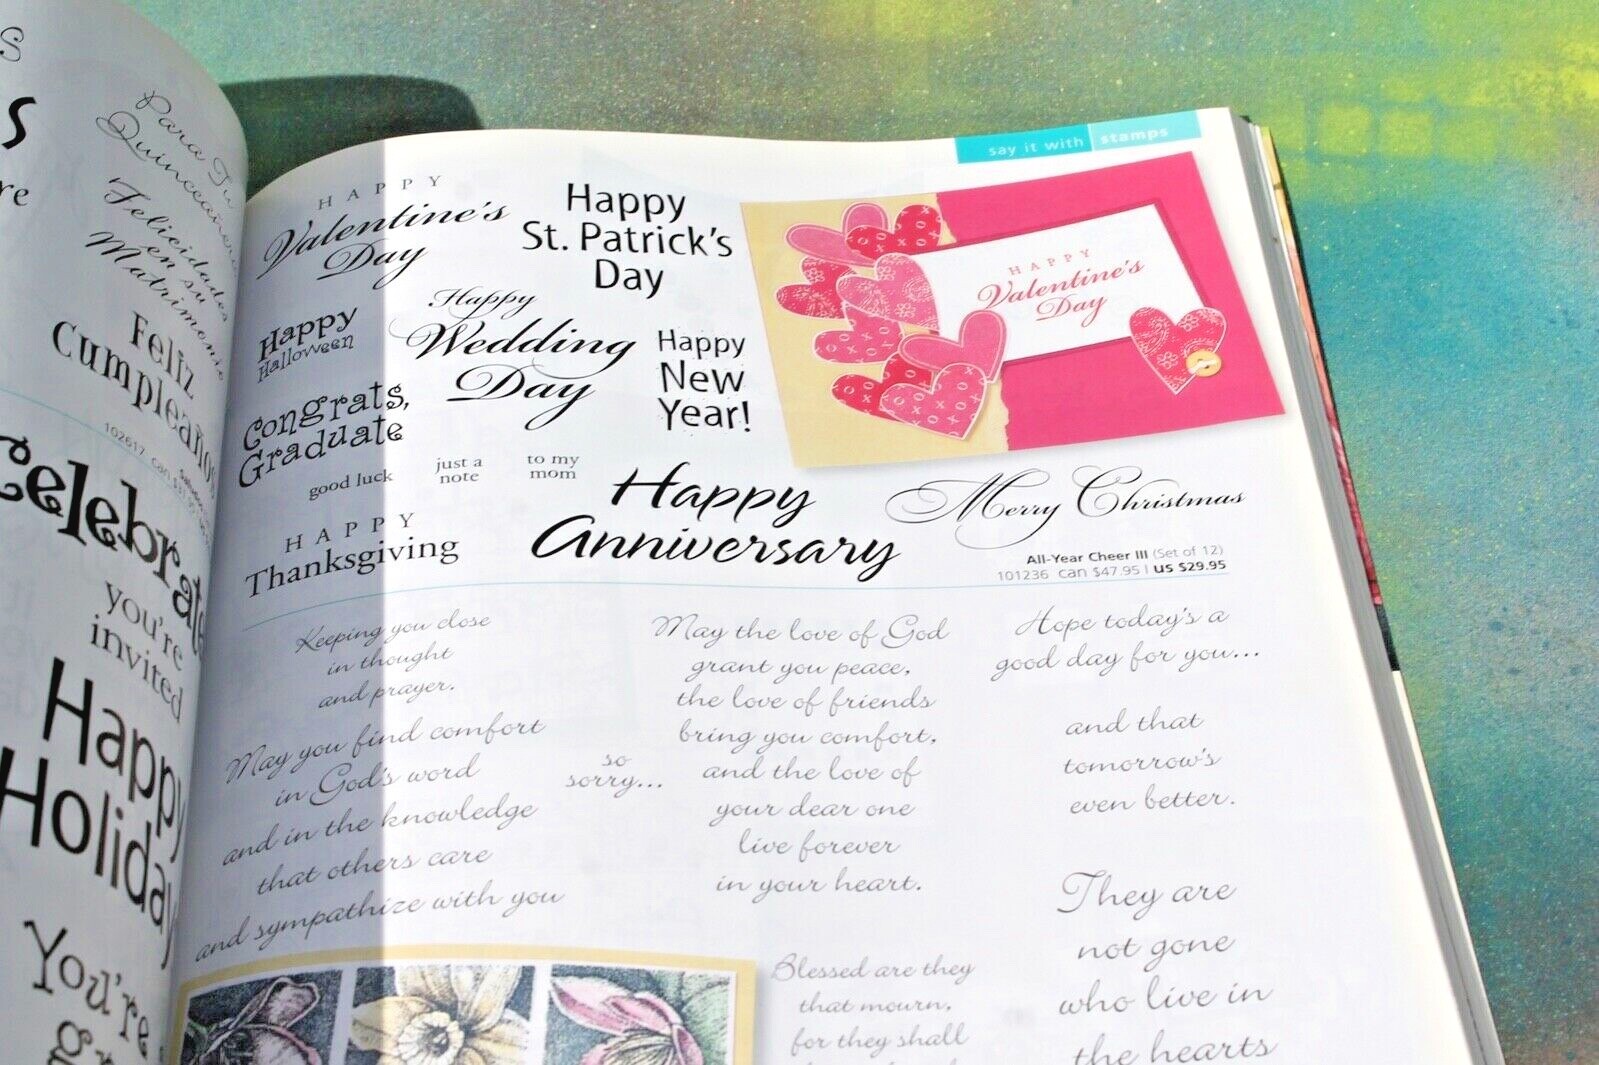 S
s
re
Para Tu
Quinceañera
Felicidades
en su
Matrimonio
Feliz
Cumpleaños
102617 can
Celebrate
you're
invited
Happy
Holiday
You're
say it with stamps
HAPPY
Valentine's
Day
Happy
St. Patrick's
Day
HAPPY
Valentine's
Day
Happy
Halloween
Happy
Wedding
Day
Happy
New
Year!
Congrats,
Graduate
good luck
just a
note
to my
mom
HAPPY
Thanksgiving
Happy
Anniversary
Merry Christmas
All-Year Cheer III (Set of 12)
101236 can $47.95 | us $29.95
Keeping you close
in thought
and prayer.
May you find comfort
in God's word
and in the knowledge
that others care
and sympathize with you
so
sorry...
May the love of God
grant you peace,
the love of friends
bring you comfort,
and the love of
your dear one
live forever
in your heart.
Hope today's a
good day for you...
and that
tomorrow's
even better.
Blessed are they
that mourn,
for they shall
They are
not gone
who live in
the hearts